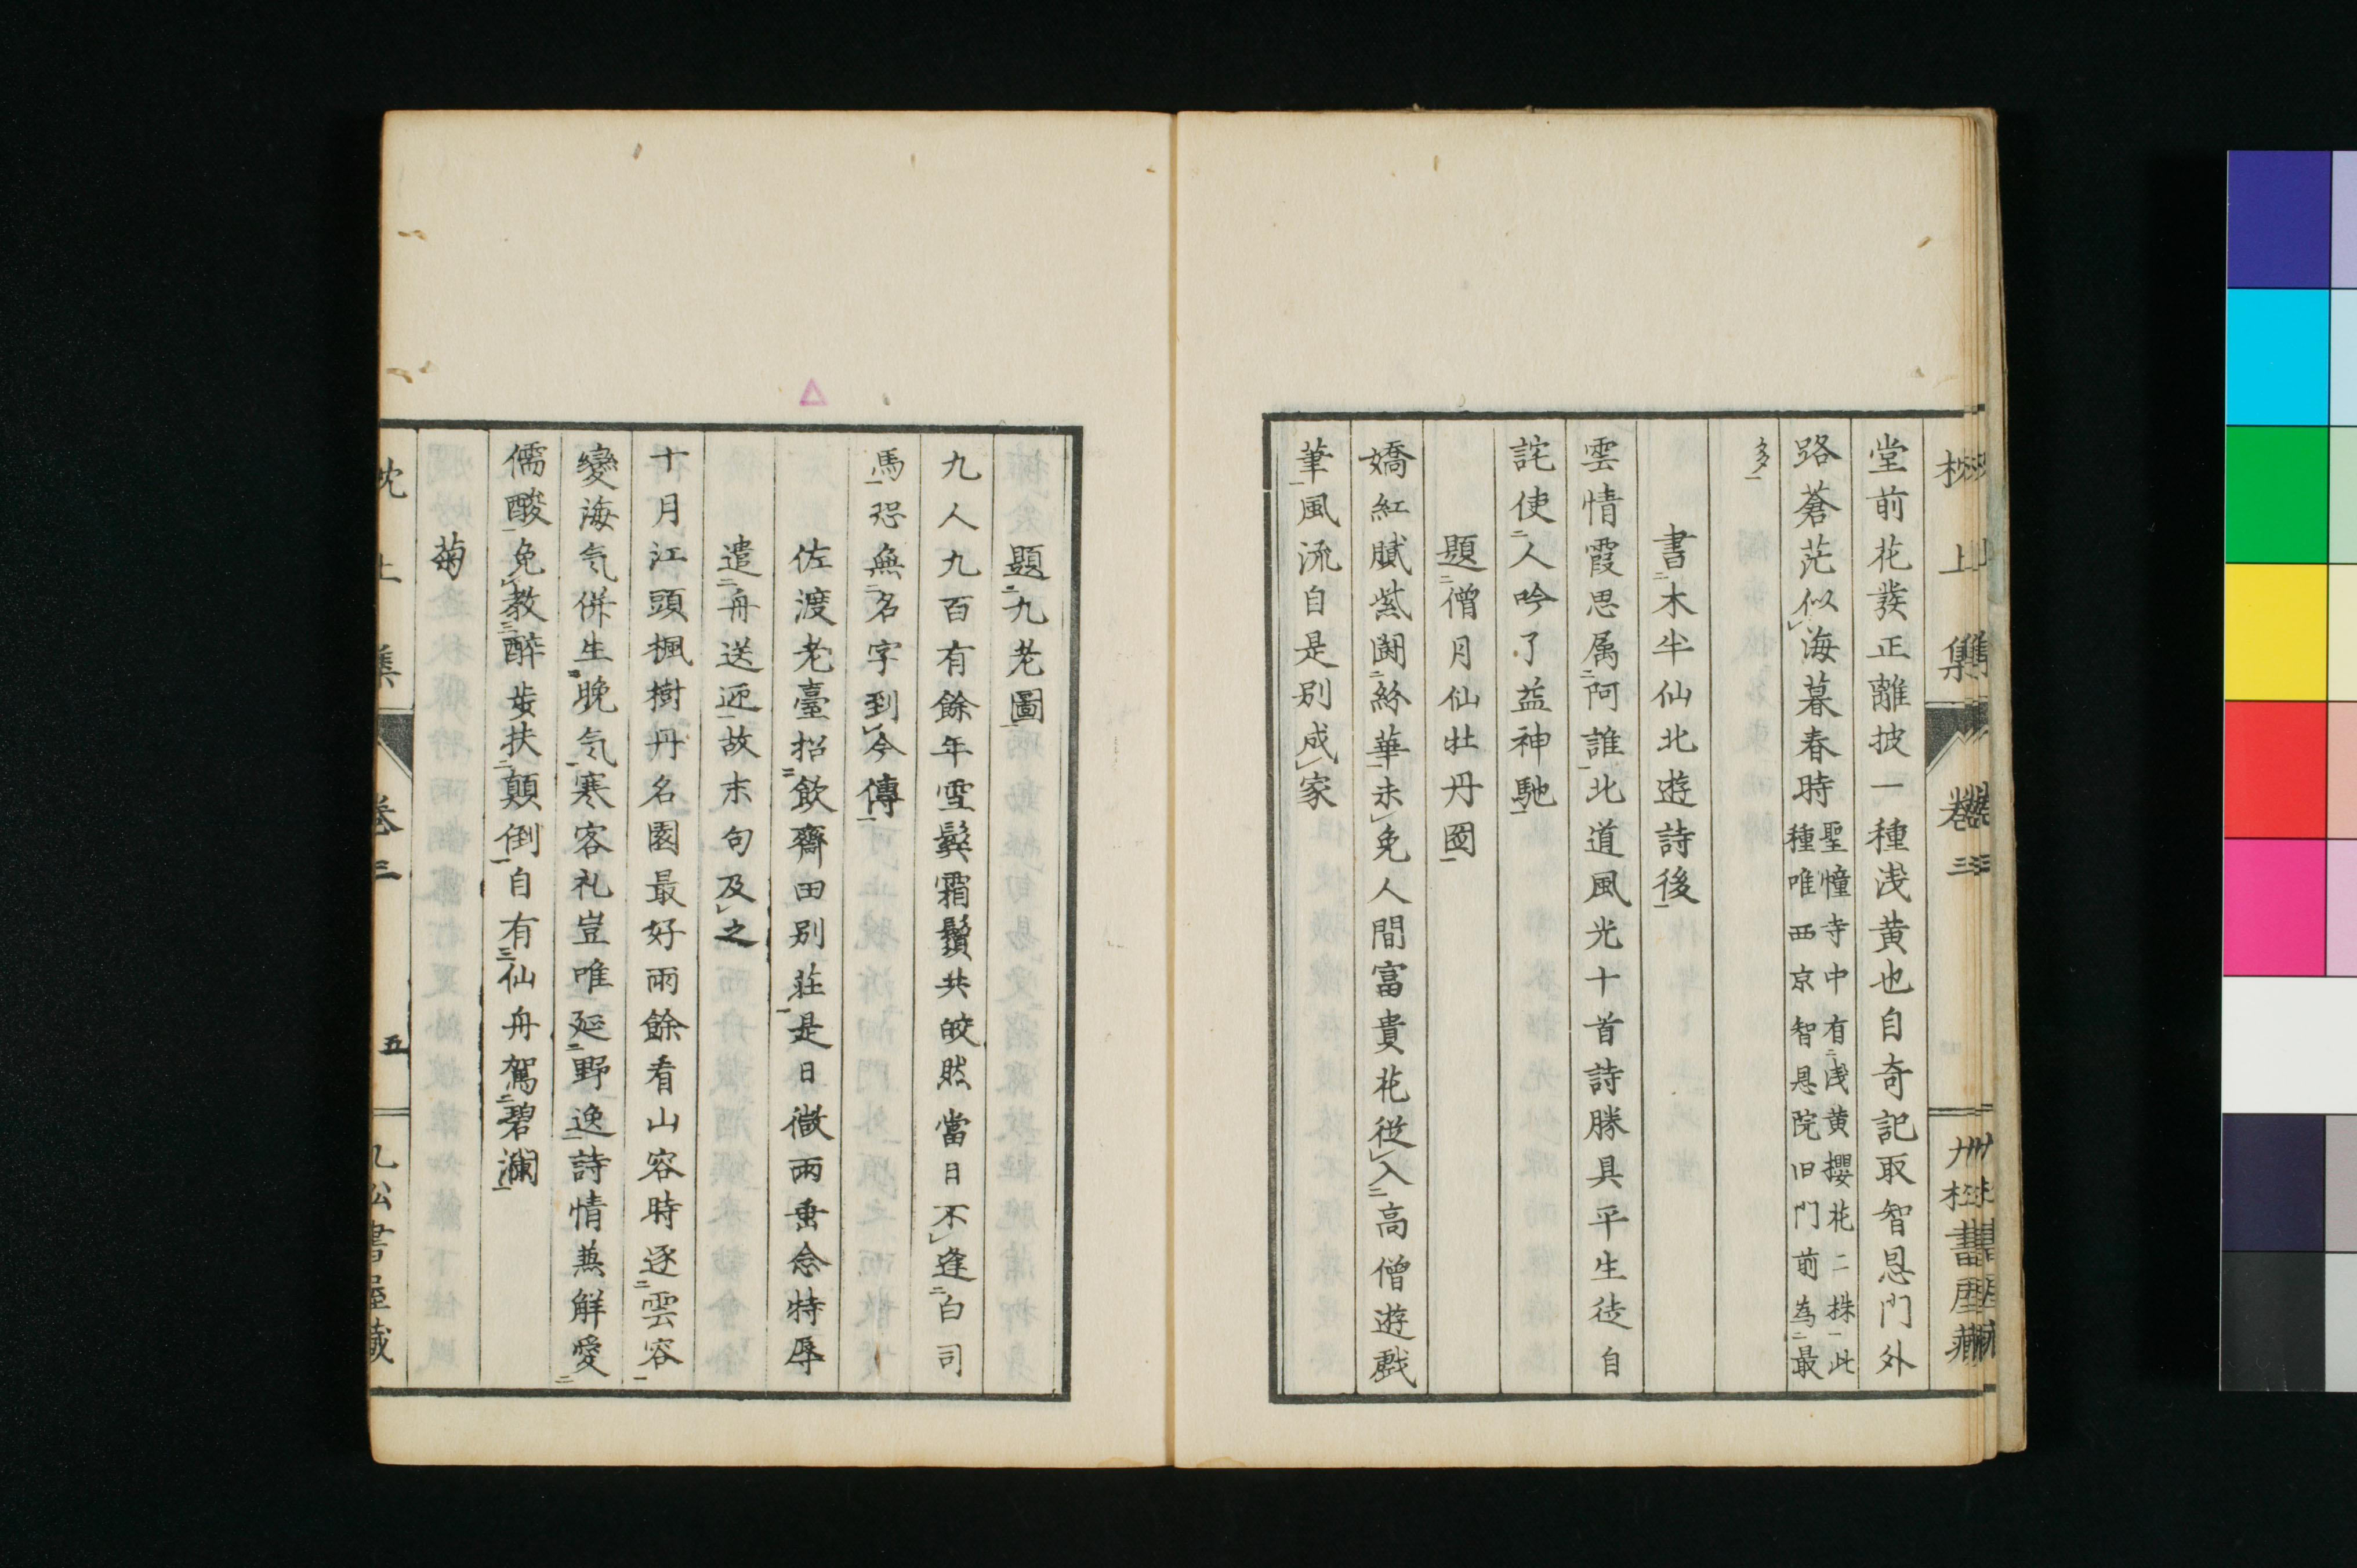 堂前花發正離披一種浅黄也自奇記取智恩門外
路蒼茫似海暮春時聖憧寺中有浅黄攖花二株此
種唯西京智恩院旧門前為最
多
書木半仙北遊詩後
雲情霞思属阿誰北道風光十首詩勝具平生徒自
詫使人吟了益神馳
題僧月仙牡丹圖
嬌紅膩紫鬪紛華未免人間富貴花從入高僧遊戲
筆風流自是别成家
題九老圖
九人九百有餘年雪鬂霜鬚共皎然當日不逢白司
馬恐無名字到今傳
佐渡老臺招飲齊田别莊是日微雨垂念特辱
遣舟送迎故末句及之
十月江頭楓樹丹名園最好雨餘看山容時逐雲容
變海気併生晩気寒客礼豈唯延野逸詩情兼解愛
儒酸免教醉歩扶顛倒自有仙舟駕碧瀾
菊
枕上集
卷三
五
九松書屋藏